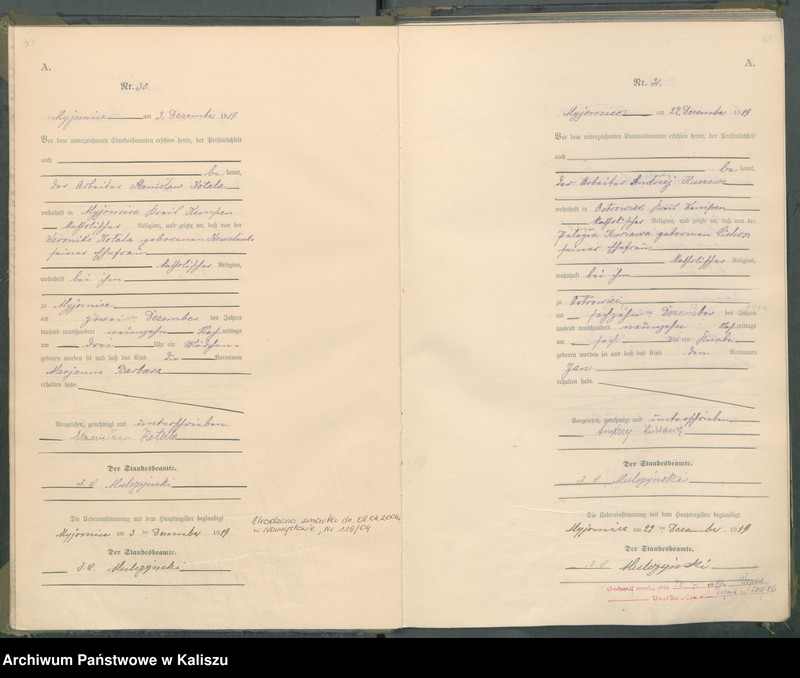 30
A.
Nr. 30.
Myjomice am 3. Dezember 1919
Vor dem unterzeichneten Standesbeamten erschien heute, der Persönlichkeit
nach
be kannt,
der Arbeiter Stanislaw Kotala
wohnhaft in Myjomice Kreis Kempen
katholischer Religion, und zeigte an, daß von der
Veronika Kotala geborenen
seiner Ehefrau
katholischer Religion,
wohnhaft bei ihm
zu Myjomice
am zwei ten Dezember des Jahres
tausend neunhundert neunzehn Nach mittags
um drei Uhr ein Mädchen
geboren worden sei und daß das Kind die Vornamen
Marjanna Barbara
erhalten habe.
Vorgelesen, genehmigt und unterschrieben
Stanisław Kotala
Der Standesbeamte.
J. V. Mulczyński
Die Uebereinstimmung mit dem Hauptregister beglaubigt
Myjomice am 3 ten Dezember 1919
Der Standesbeamte.
J. V. Mulczyński
Urodzona zmarła dn. 08.04.2004
w Namysłowie, Nr 118/04
31
A.
Nr. 31.
Myjomice am 22 Dezember 1919
Vor dem unterzeichneten Standesbeamten erschien heute, der Persönlichkeit
nach
be kannt,
der Arbeiter Andrzej Kurzawa
wohnhaft in Ostrowiec Kreis Kempen
katholischer Religion, und zeigte an, daß von der
Pelagia Kurzawa geborenen
seiner Ehefrau
katholischer Religion,
wohnhaft bei ihm
zu Ostrowiec
am sechzehn ten Dezember des Jahres
tausend neunhundert neunzehn Nach mittags
um Uhr ein Knabe
geboren worden sei und daß das Kind den Vornamen
Jan
erhalten habe.
Vorgelesen, genehmigt und unterschrieben
Andrzej Kurzawa
Der Standesbeamte.
J. V. Mulczyński
Die Uebereinstimmung mit dem Hauptregister beglaubigt
Myjomice am 22 ten Dezember 1919
Der Standesbeamte.
J. V. Mulczyński
Archiwum Państwowe w Kaliszu